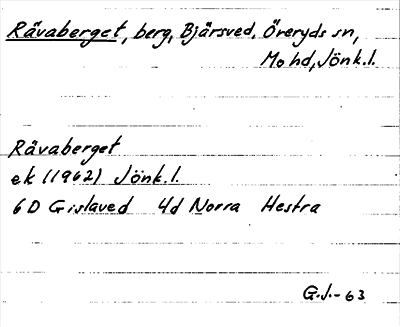 Rävaberget, berg, Bjärsved, Öreryds sn,
Mo hd, Jönk.l.
Råvaberget
ek (1962) Jönk.l.
6D Gislaved 4d Norra Hestra
G.J.-63